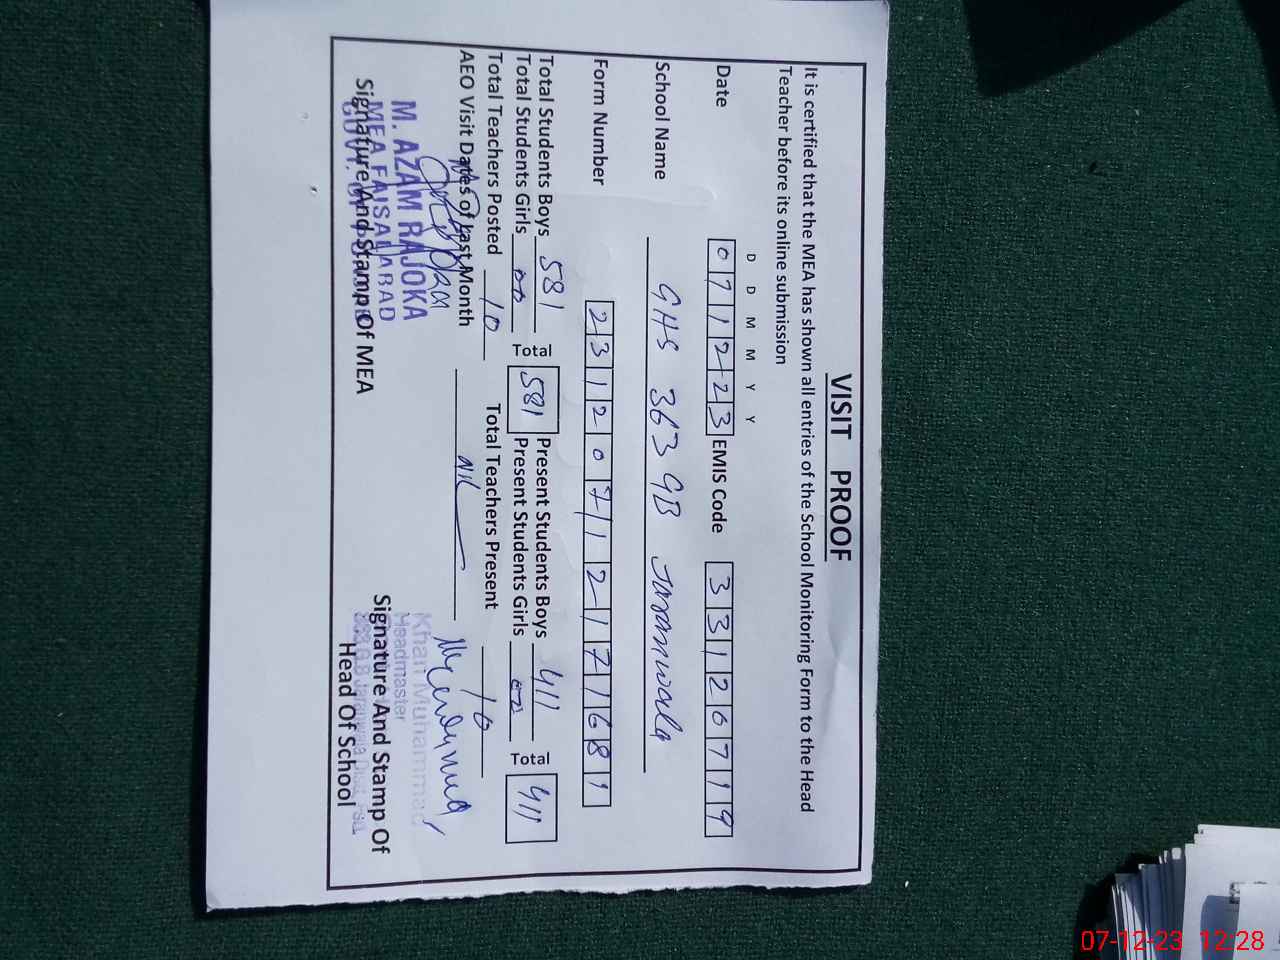 VISIT PROOF
It is certified that the MEA has shown all entries of the School Monitoring Form to the Head
Teacher before its online submission
D D M M Y Y
Date 071223 EMIS Code 33120719
School Name GHS 363 GB Jaranwala
Form Number 2312071217168
Total Students Boys 581 Total 581 Present Students Boys 411 Total 411
Total Students Girls Present Students Girls
Total Teachers Posted 10 Total Teachers Present 10
AEO Visit Dates of Last Month Nil
M. AZAM RAJOKA
MEA FAISALABAD
Signature And Stamp Of MEA
Khan Muhammad
Headmaster
Signature And Stamp Of
Head Of School
07-12-23 12:28